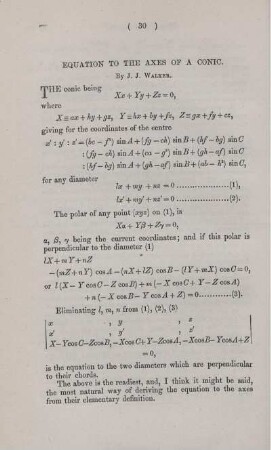 ( 30 )
EQUATION TO THE AXES OF A CONIC.
By J. J. WALKER.
THE conic being Xx + Yy + Zz = 0,
where
X ≡ ax + hy + gz, Y ≡ hx + by + fz, Z ≡ gx + fy + cz,
giving for the coordinates of the centre
x' : y' : z' = (bc - f²) sin A + (fg - ch) sin B + (hf - bg) sin C
: (fg - ch) sin A + (ca - g²) sin B + (gh - af) sin C
: (hf - bg) sin A + (gh - af) sin B + (ab - h²) sin C,
for any diameter
lx + my + nz = 0 ..................(1),
lx' + my' + nz' = 0 ..................(2).
The polar of any point (xyz) on (1), is
Xα + Yβ + Zγ = 0,
α, β, γ being the current coordinates; and if this polar is
perpendicular to the diameter (1)
lX + mY + nZ
- (mZ + nY) cos A - (nX + lZ) cos B - (lY + mX) cos C = 0,
or l (X - Y cos C - Z cos B) + m (- X cos C + Y - Z cos A)
+ n (- X cos B - Y cos A + Z) = 0............(3).
Eliminating l, m, n from (1), (2), (3)
| x , y , z |
| x' , y' , z' |
| X - Y cos C - Z cos B, - X cos C + Y - Z cos A, - X cos B - Y cos A + Z |
= 0,
is the equation to the two diameters which are perpendicular
to their chords.
The above is the readiest, and, I think it might be said,
the most natural way of deriving the equation to the axes
from their elementary definition.